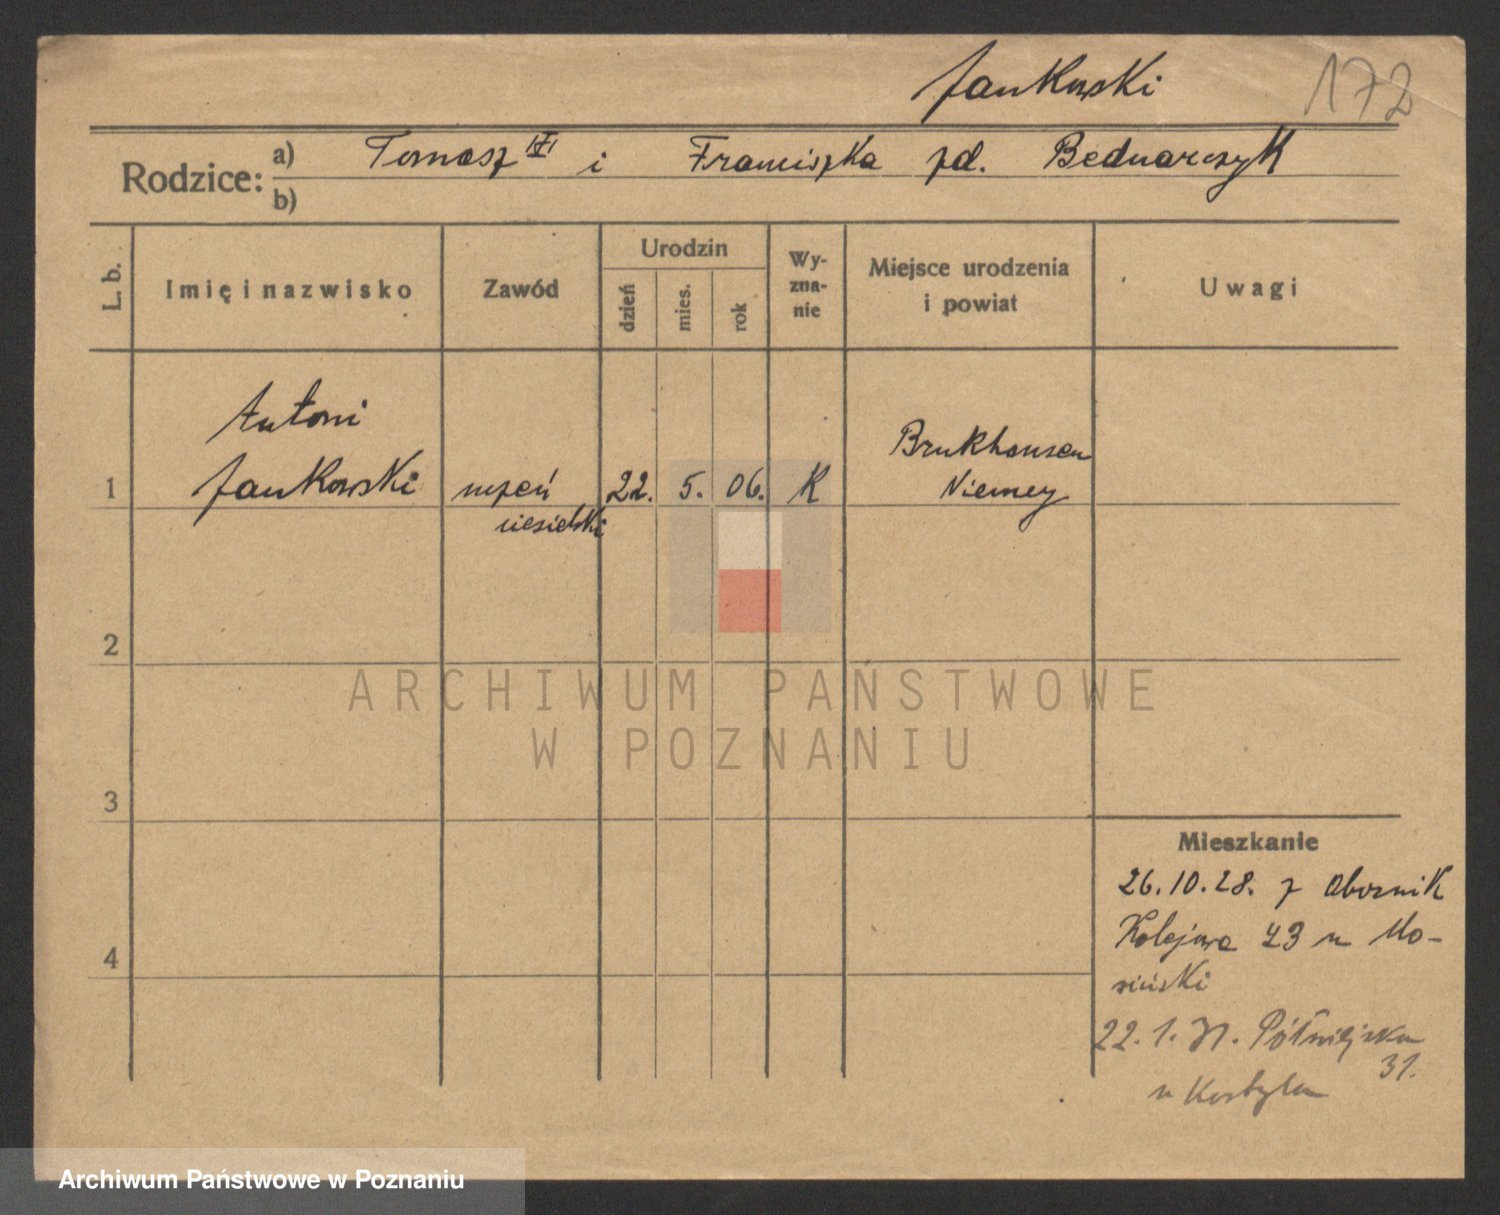 Jankowski 172
Rodzice: a) Tomasz i Franciszka zd. Bednarczyk
b)
L. b. Imię i nazwisko Zawód Urodzin dzień mies. rok Wy-zna-nie Miejsce urodzenia i powiat Uwagi
Antoni Brukhausen
1 Jankowski uczeń 22. 5. 06. K Niemcy
ciesielski
2
ARCHIWUM PAŃSTWOWE
W POZNANIU
3
Mieszkanie
26.10.28. z Obornik
Kolejowa 43 u Mo-
siński
4
22. 1. 31. Półwiejska
31.
u Kostyla
Archiwum Państwowe w Poznaniu